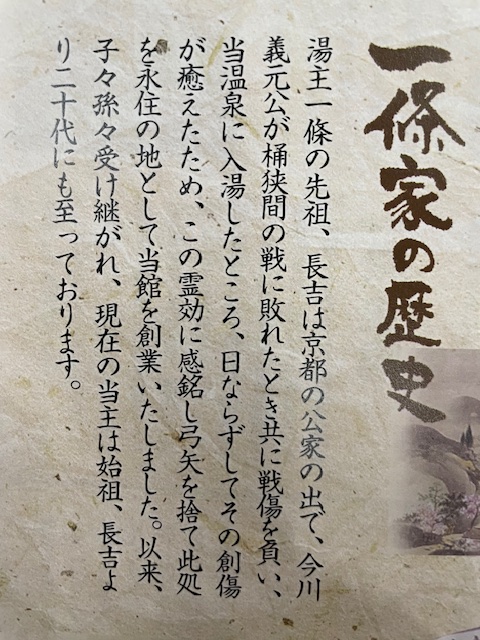 一條家の歴史
湯主一條の先祖、長吉は京都の公家の出で、今川
義元公が桶狭間の戦に敗れたとき共に戦傷を負い、
当温泉に入湯したところ、日ならずしてその創傷
が癒えたため、この霊効に感銘し弓矢を捨て此処
を永住の地として当館を創業いたしました。以来、
子々孫々受け継がれ、現在の当主は始祖、長吉よ
り二十代にも至っております。